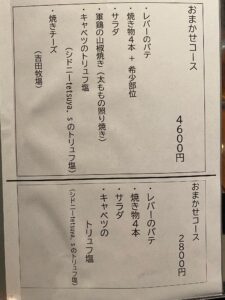 おまかせコース 4600円
・レバーのパテ
・焼き物4本 + 希少部位
・サラダ
・軍鶏の山椒焼き(太ももの照り焼き)
・キャベツのトリュフ塩
(シドニーtetsuya,sのトリュフ塩)
・焼きチーズ
(吉田牧場)
おまかせコース 2800円
・レバーのパテ
・焼き物4本
・サラダ
・キャベツの
トリュフ塩
(シドニーtetsuya,sのトリュフ塩)